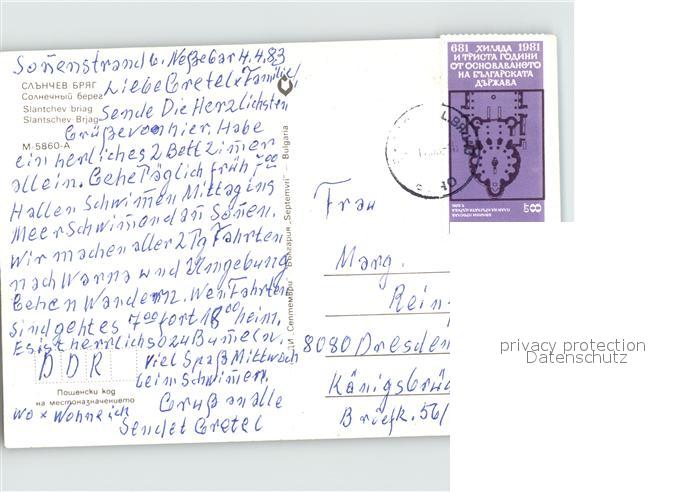 Sonenstrand b. Neßebar 4.4.83
СЛЪНЧЕВ БРЯГ
Солнечный берег
Slantchev briag
Slantschev Brjag
M-5860-A
Liebe Gretel u Familie,
Sende Die Herzlichsten
Grüße von hier. Habe
ein herliches 2 Bett Zimer
allein. Gehe Täglich früh 7 00
Hallen Schwimen Mittag ins
Meer Schwimen und an Sonen.
Wir machen aller 2 Tg Fahrten
nach Warna und Umgebung
Gehen Wandern. Wen Fahrten
sind geht es 7 00 fort 18 00 heim.
Es ist herrlich so zu Bumeln.
DDR
Viel Spaß Mittwoch
beim Schwimen.
Пощенски код
на местоназначението
wo x Wohne ich
Gruß an alle
Sendet Gretel
ДИ „Септември“ България „Septemvri“ — Bulgaria
681 ХИЛЯДА 1981
И ТРИСТА ГОДИНИ
ОТ ОСНОВАВАНЕТО
НА БЪЛГАРСКАТА
ДЪРЖАВА
Frau
Marg.
Rein
8080 Dresden
Königsbrüc
Briefk. 56/
privacy protection
Datenschutz